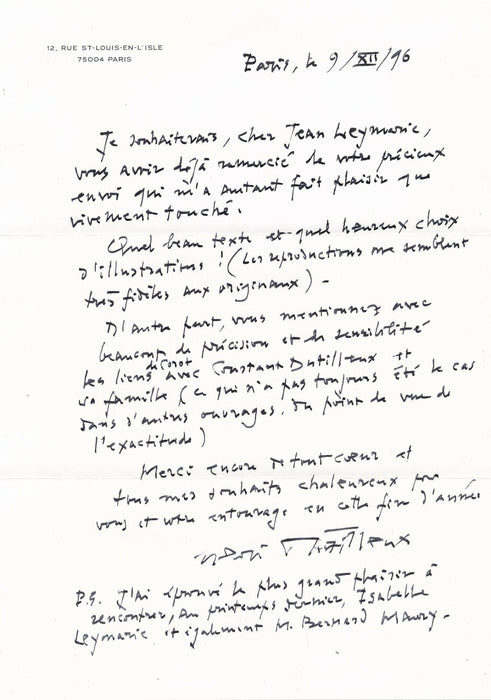 12, RUE ST-LOUIS-EN-L'ISLE
75004 PARIS
Paris, le 9/XII/96
Je souhaiterais, cher Jean Leymarie,
vous avoir déjà remercié de votre précieux
envoi qui m'a autant fait plaisir que
vivement touché.
Quel beau texte et quel heureux choix
d'illustrations ! (Les reproductions me semblent
très fidèles aux originaux) -
D'autre part, vous mentionnez avec
beaucoup de précision et de sensibilité
les liens de Corot avec Constant Dutilleux et
sa famille (ce qui n'a pas toujours été le cas
dans d'autres ouvrages, du point de vue de
l'exactitude)
Merci encore de tout cœur et
tous mes souhaits chaleureux pour
vous et votre entourage en cette fin d'année
Henri Dutilleux
P.S. J'ai éprouvé le plus grand plaisir à
rencontrer, au printemps dernier, Isabelle
Leymarie et également M. Bernard Maury -